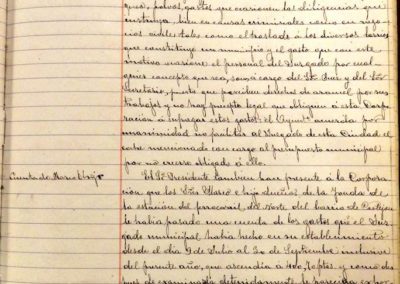 que, polvos, gastos que ocasionen las diligencias que
instruya, bien en causas criminales como en nego-
cios civiles, tales como el traslado á los diversos barrios
que constituyen un municipio y el gasto que con este
motivo ocasione el personal del Juzgado por cual-
quier concepto que sea, son á cargo del Sr. Juez y del Sr.
Secretario, puesto que perciben derechos de arancel por sus
trabajos y no hay precepto legal que obligue á esta Corpo-
ración á sufragar estos gastos: el Ayunt. acuerda por
unanimidad no facilitar al Juzgado de esta Ciudad el
coche mencionado con cargo al presupuesto municipal
por no creerse obligado á ello.
Cuenta de
El Sr. Presidente tambien hace presente á la Corpora-
ción que los Sres. é hijo dueños de la fonda de
la estación del ferrocarril del Norte del barrio de
le habia pasado una cuenta de los gastos que el Juz-
gado municipal habia hecho en su establecimiento
desde el dia 9 de Julio al 30 de Septiembre inclusive
del presente año, que ascendia á 400,70 ptas. y como des-
pues de examinada detenidamente le parecia